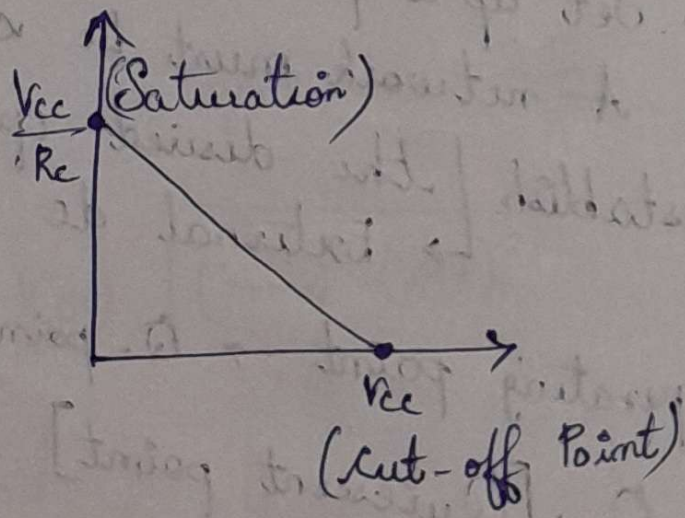 Vcc
Rc
(Saturation)
Vcc
(cut-off Point)